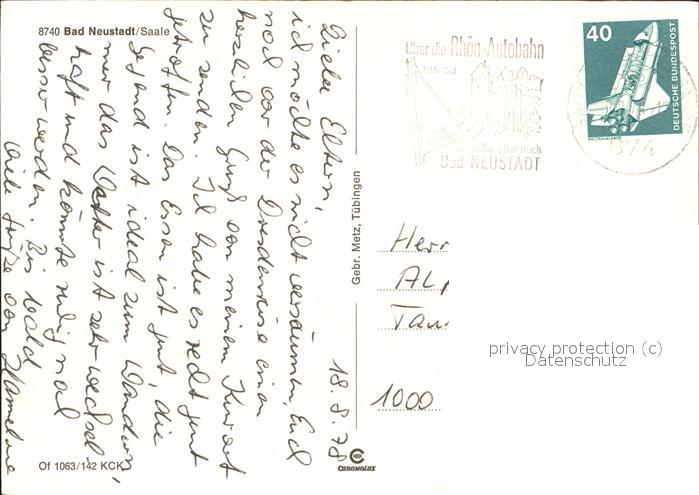 8740 Bad Neustadt/Saale
18. 8. 78
Liebe Eltern,
ich möchte es nicht versäumen, Euch
noch vor der Dresdenreise einen
herzlichen Gruß von meinem Kurort
zu senden. Ich habe es recht gut
getroffen. Das Essen ist gut, die
Gegend ist ideal zum Wandern,
nur das Wetter ist sehr wechsel-
haft und könnte ruhig mal
besser werden. Bis bald
Viele Grüße von
Of 1063/142 KCK
CHROMOLUX
Gebr. Metz, Tübingen
Über die Rhön-Autobahn
öfter nach
Bad NEUSTADT
874
40
DEUTSCHE BUNDESPOST
WELTRAUMLABOR
Herr
Al
Tau
1000
privacy protection (c)
Datenschutz